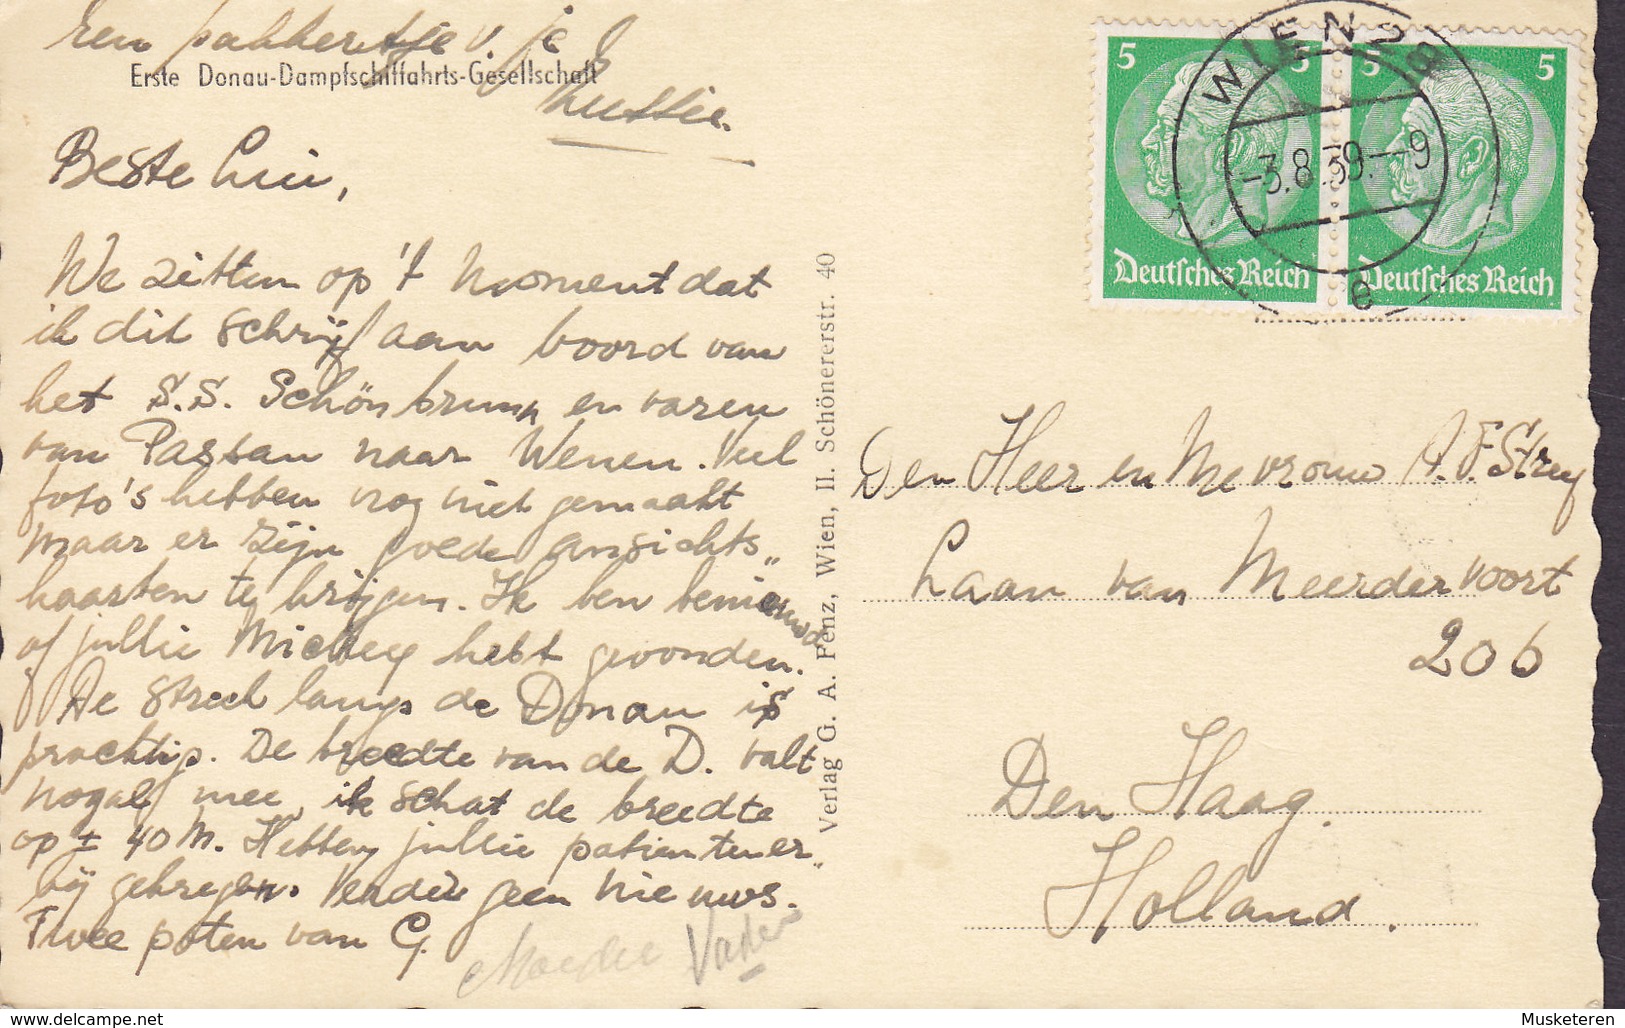 Een pakkertje v. je
Erste Donau-Dampfschiffahrts-Gesellschaft
Beste Lui,
We zitten op 't moment dat
ik dit schrijf aan boord van
het S.S. Schönbrunn en varen
van Passau naar Wenen. Veel
foto's hebben nog niet gemaakt
maar er zijn goede ansichts„
kaarten te krijgen. Ik ben benieuwd
of jullie Mickey hebt gevonden.
De streek langs de Donau is
prachtig. De breedte van de D. valt
nogal mee, ik schat de breedte
op ± 40 M. Hebben jullie patienten er„
bij gekregen. Verder geen nieuws.
Twee poten van G.
Moeder Vader
Verlag G. A. Fenz, Wien, II. Schönererstr. 40
WIEN 28
-3.8.39.--9
e
5 5
Deutsches Reich
5 5
Deutsches Reich
Den Heer en Mevrouw A.F. Struy
Laan van Meerdervoort
206
Den Haag.
Holland.
delcampe.net
Musketeren